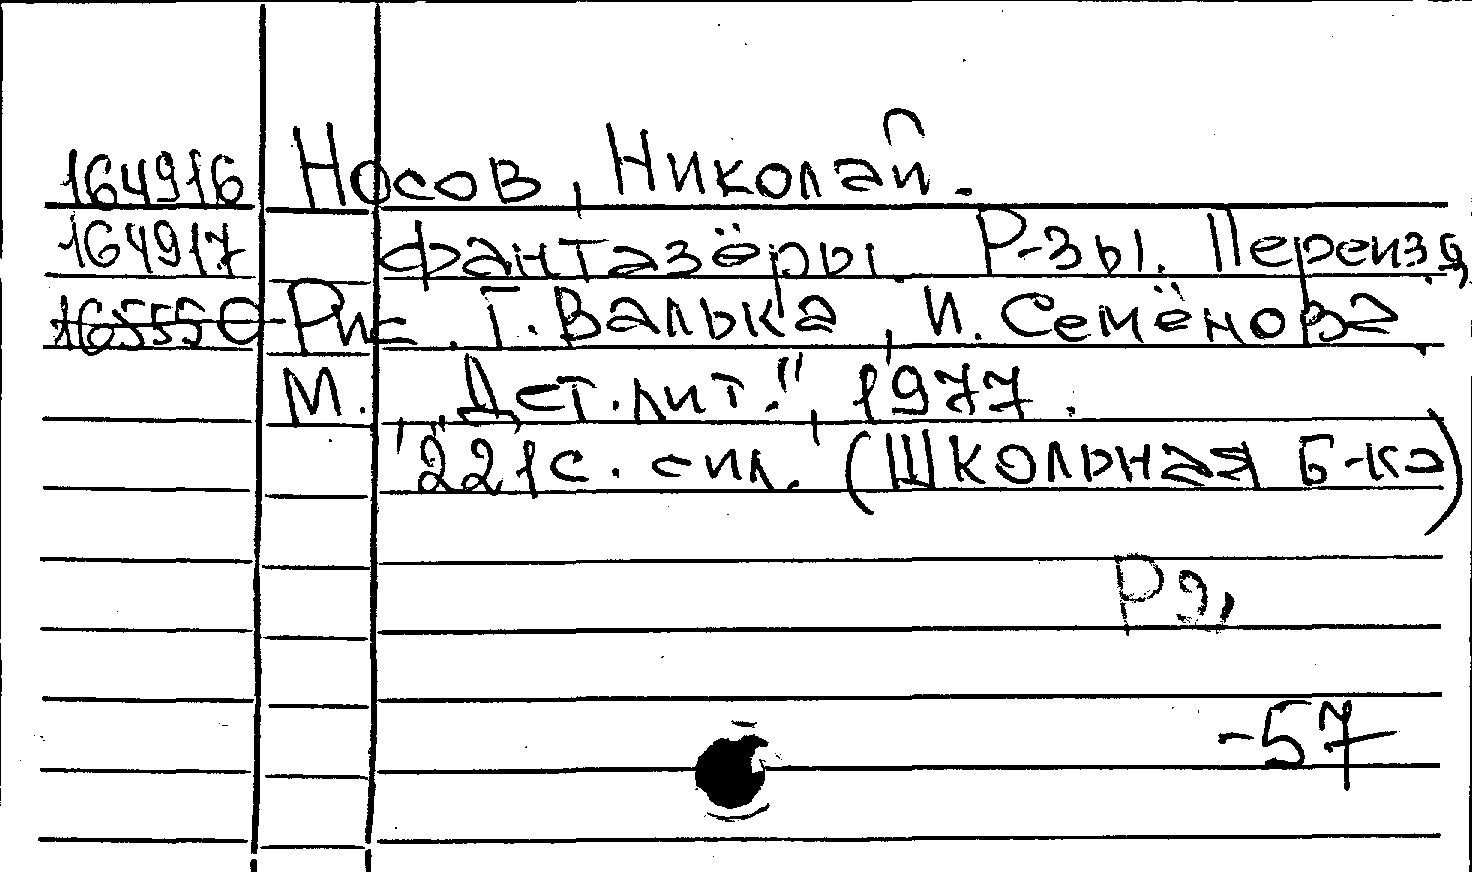 164916 Носов, Николай.
164917 Фантазёры. Р-зы. Переизд.
165550 Рис. Г. Валька, И. Семёнова.
М., "Дет. лит.", 1977.
221 с. с ил. (Школьная б-ка)
Р2,
-57